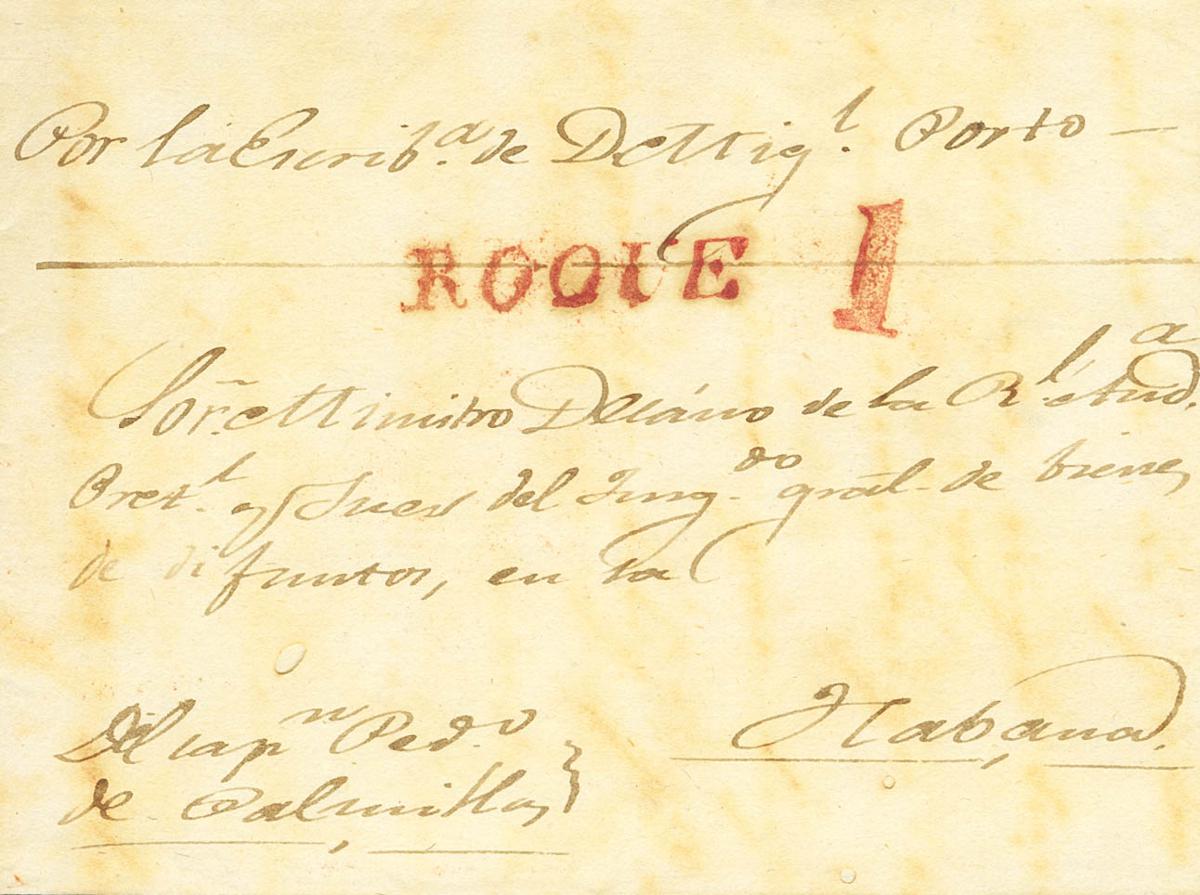 Por la Escrib.a de D Mig.l Porto —
ROQUE 1
Sor. Ministro Decano de la Rl. Aud.a
Pret.l y Juez del Juzg.do gral. de bienes
de difuntos, en la
Habana.
Del capn Ped.o
de Palmillas